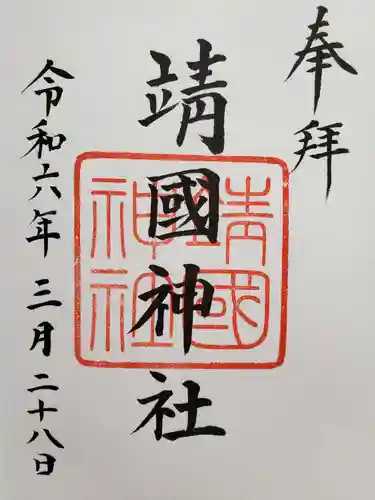 奉拝
靖國神社
靖國
神社
令和六年三月二十八日